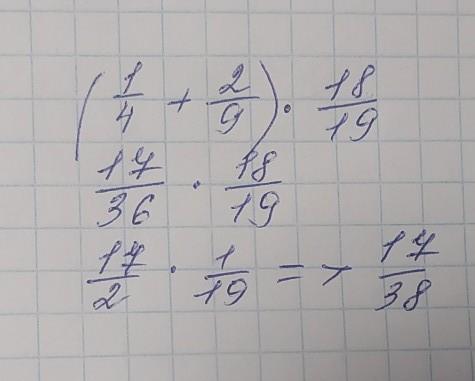 (1/4 + 2/9) · 18/19
17/36 · 18/19
17/2 · 1/19 = - 17/38